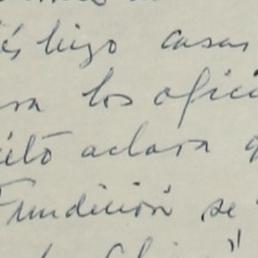 és hizo casas
ra los ofici
itó aclara q
Fundición se